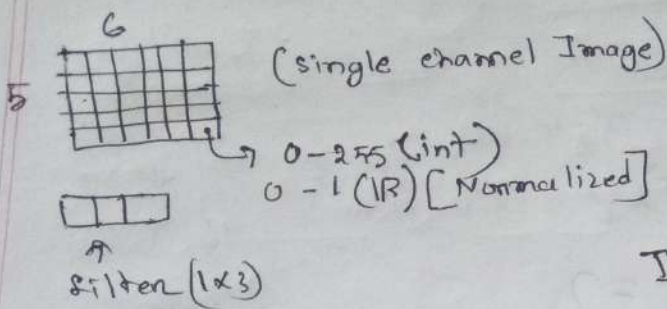 6
5
(single channel Image)
0-255 (int)
0-1 (IR) [Normalized]
filter (1x3)
I